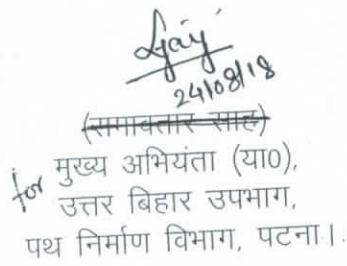 24/08/18
(रामावतार साह)
for मुख्य अभियंता (या0),
उत्तर बिहार उपभाग,
पथ निर्माण विभाग, पटना।